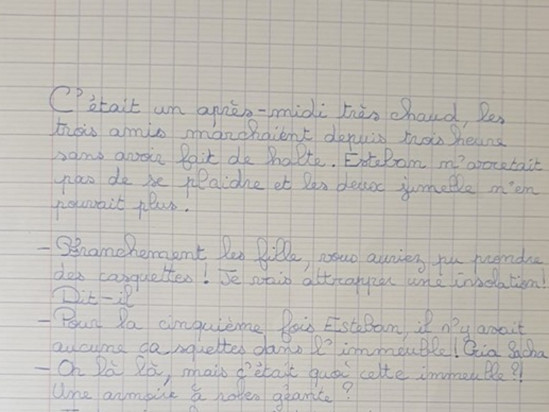 C'était un après-midi très chaud, les
trois amis marchaient depuis trois heure
sans avoir fait de halte. Esteban n'arretait
pas de se plaidre et les deux jumelle n'en
pouvait plus.
- Franchement les fille, vous auriez pu prendre
des casquettes ! Je vais attrapper une insolation !
Dit-il
- Pour la cinquième fois Esteban, il n'y avait
aucune casquettes dans l'immeuble ! Cria Sacha
- Oh là là, mais c'était quoi cette immeuble ?!
Une armoire à robes géante ?